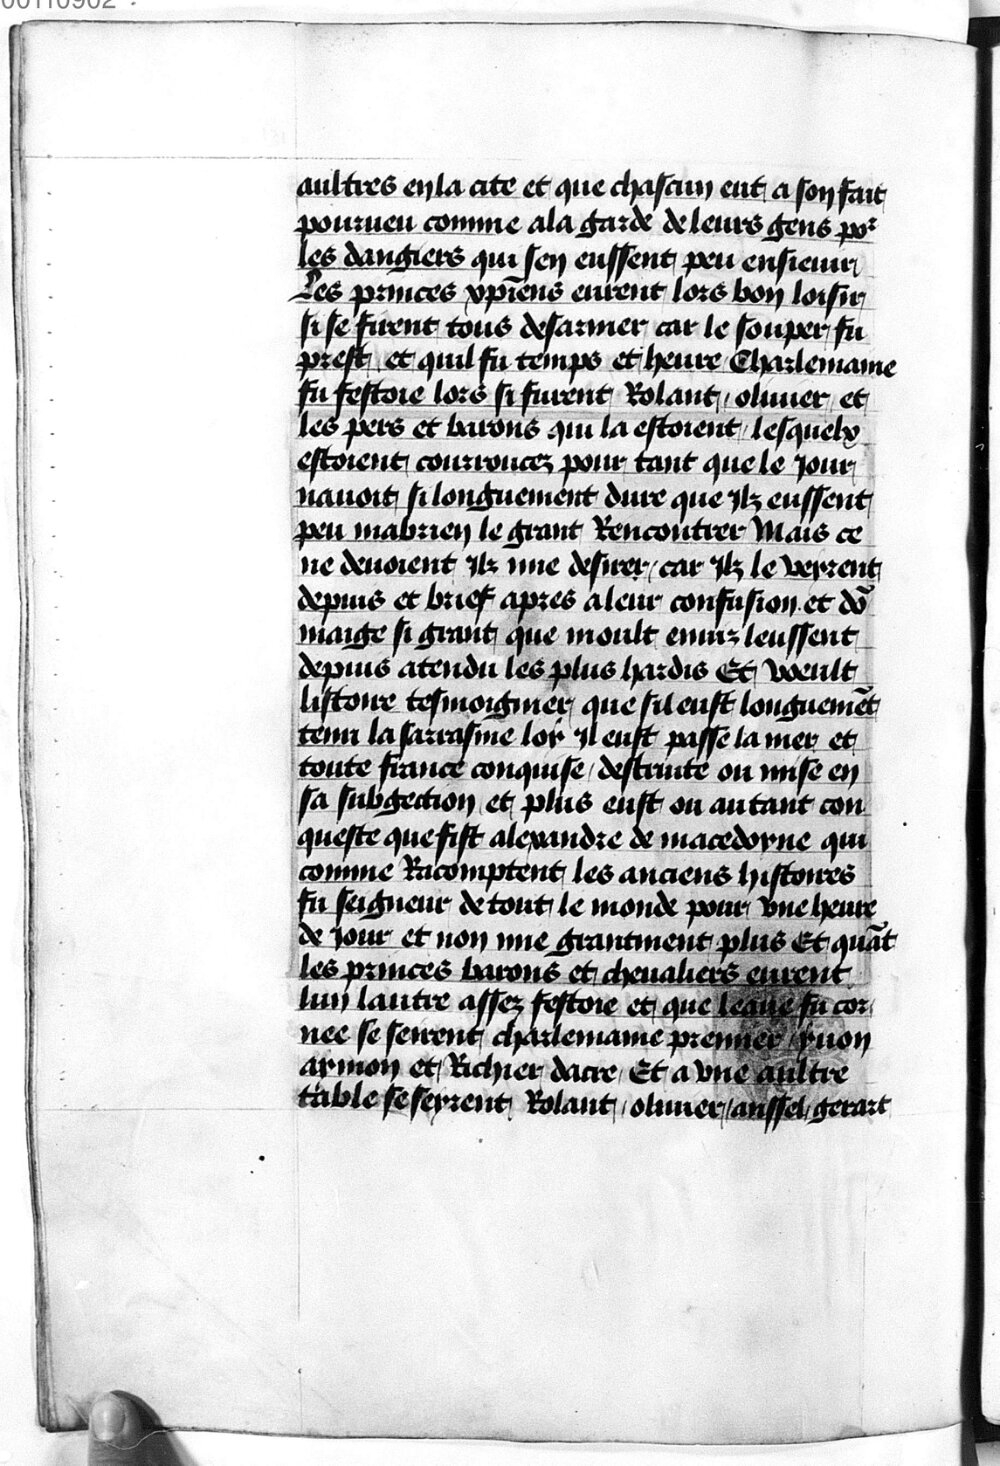 00110902
aultres en la cite et que chascun eut a son fait
pourueu comme a la garde de leurs gens por
les dangiers qui sen eussent peu ensieuir
Les princes xpiens eurent lors bon loisir
si se firent tous desarmer car le souper fu
prest et quil fu temps et heure Charlemaine
fu festoie lors si furent Rolant / oliuier et
les pers et barons qui la estoient / lesquelx
estoient courroucez pour tant que le Jour
nauoit si longuement dure que Jlz eussent
peu mabrien le grant Rencontrer Mais ce
ne deuoient Jlz mie desirer / car Jlz le veyrent
depuis et brief apres a leur confusion et dō
maige si grant que moult enuiz leussent
depuis atendu les plus hardis Et voeult
listoire tesmoignier que sil eust longuemēt
tenu la sarrasine loy Jl eust passe la mer et
toute france conquise / destruite ou mise en
sa subgection et plus eust ou autant con
queste que fist alexandre de macedoyne qui
comme Racomptent les anciens histoires
fu seigneur de tout le monde pour vne heure
de Jour et non mie grantment plus Et quāt
les princes barons et cheualiers eurent
lun lautre assez festoie et que leaue fu cor
nee se seirent charlemaine premier / yuon
aymon et Richier dacre Et a vne aultre
table se seyrent Rolant / oliuier / anssel / gerart